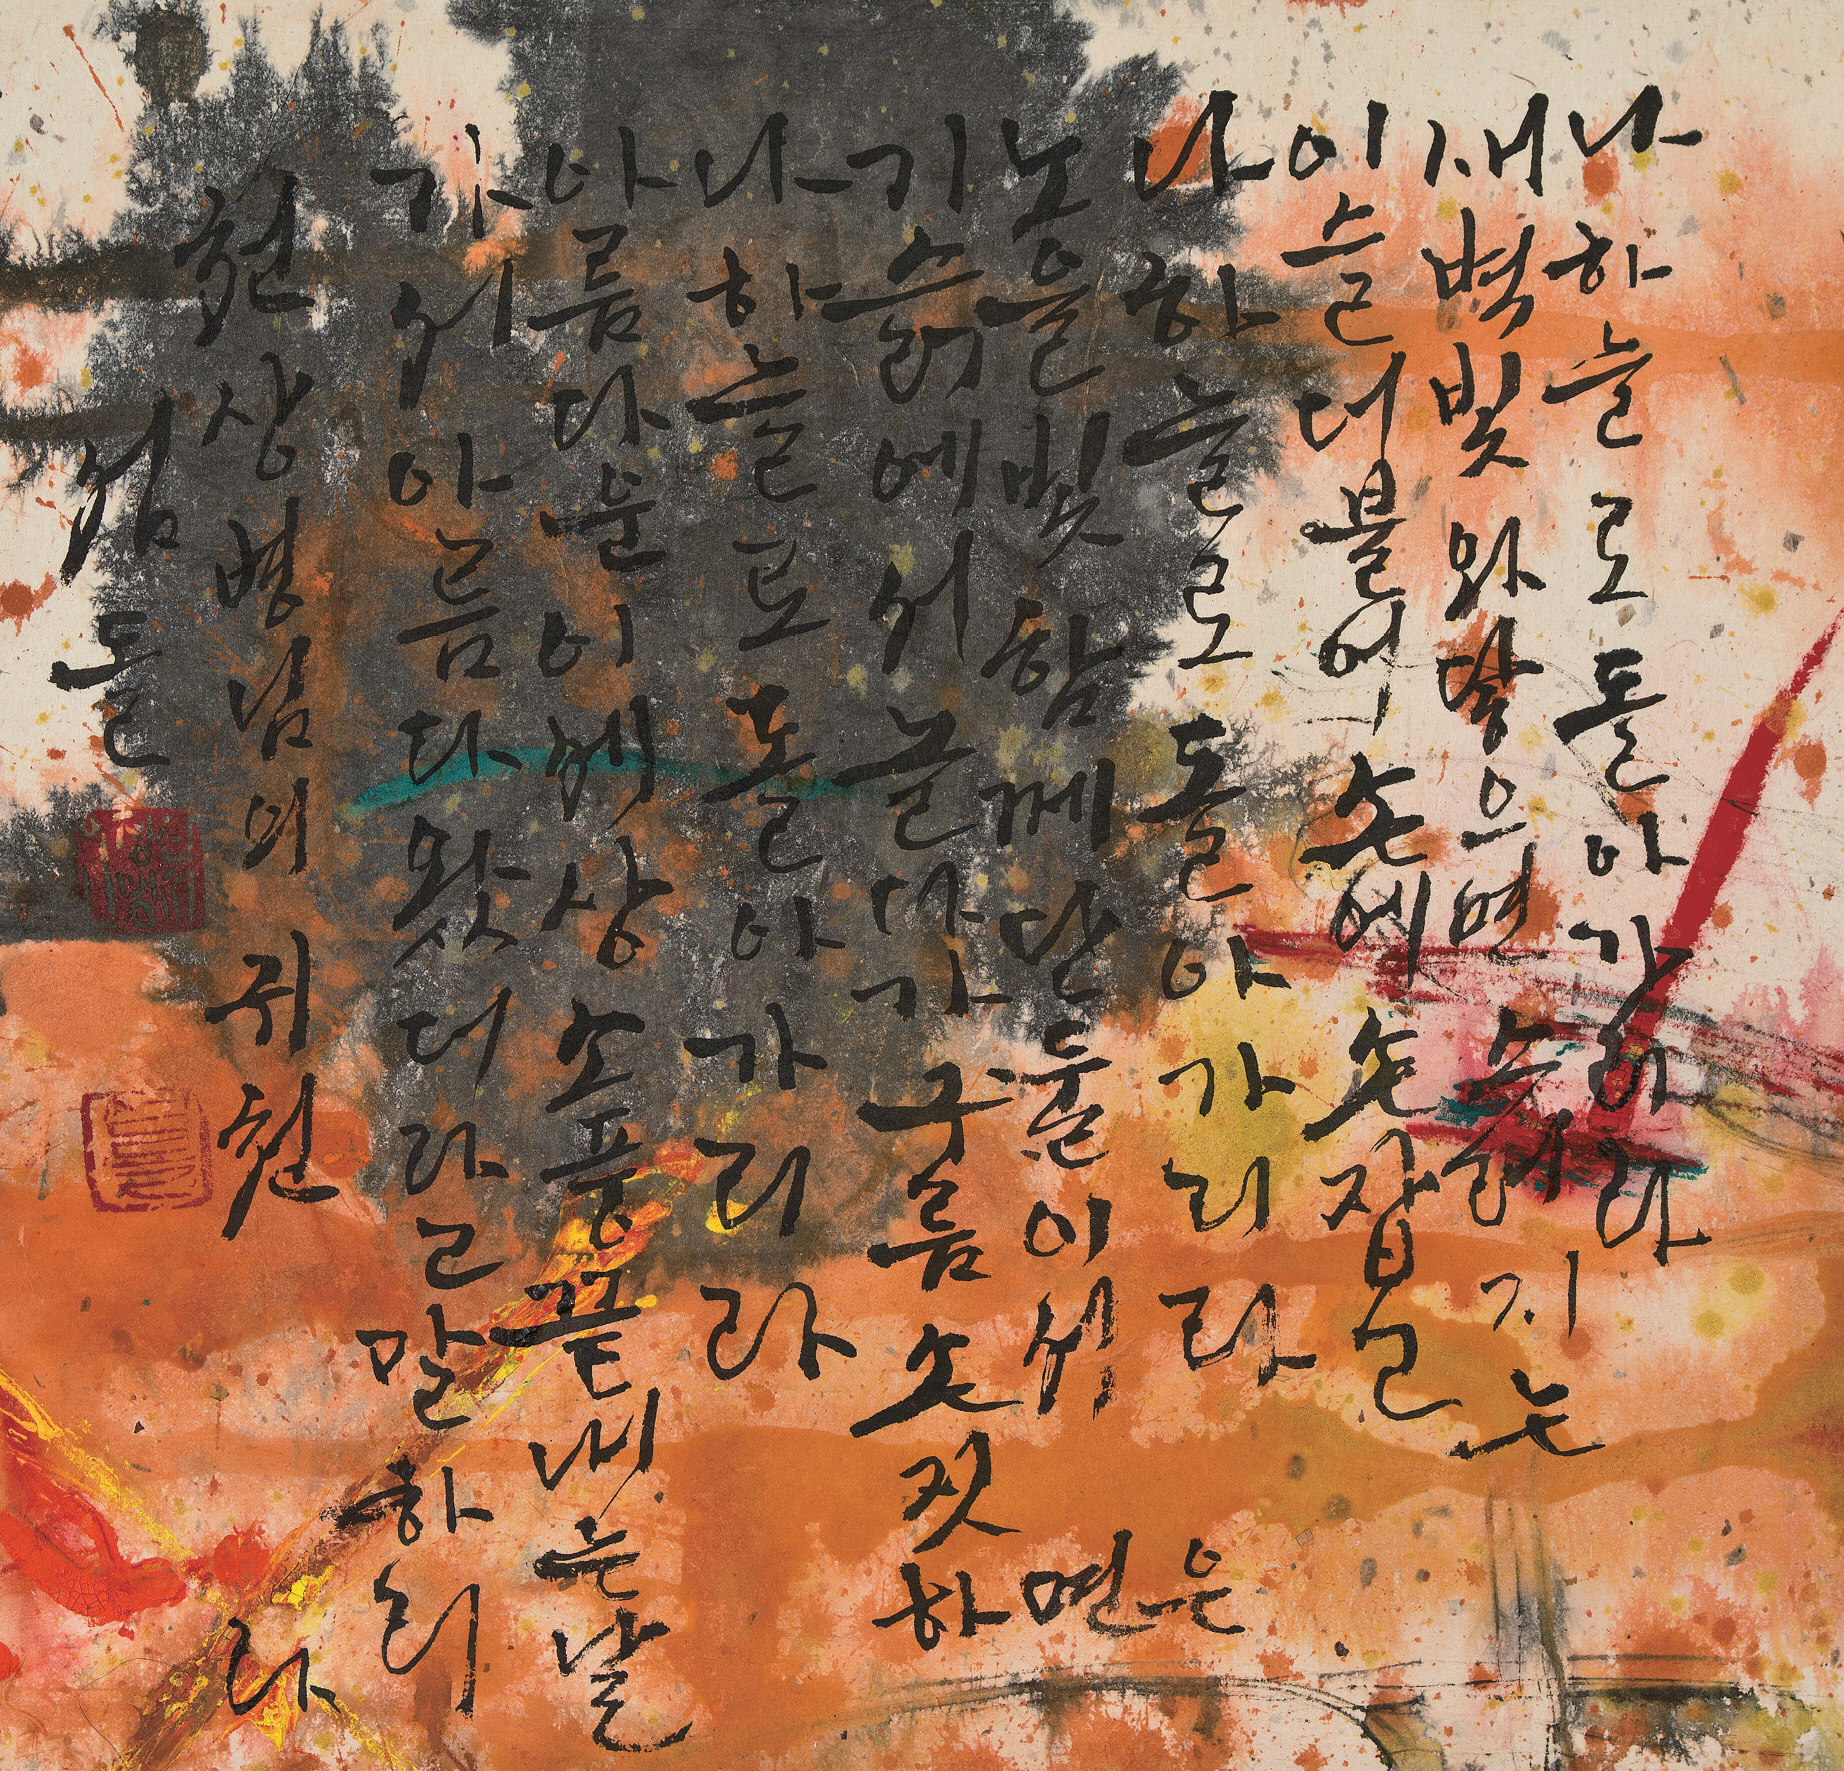 나 하늘로 돌아가리라
새벽빛 와 닿으면 스러지는
이슬 더불어 손에 손잡고
나 하늘로 돌아가리라
노을빛 함께 단 둘이서
기슭에서 놀다가 구름 손짓하면은
나 하늘로 돌아가리라
아름다운 이 세상 소풍 끝내는 날
가서 아름다웠더라고 말하리라
천상병님의 귀천
섬돌